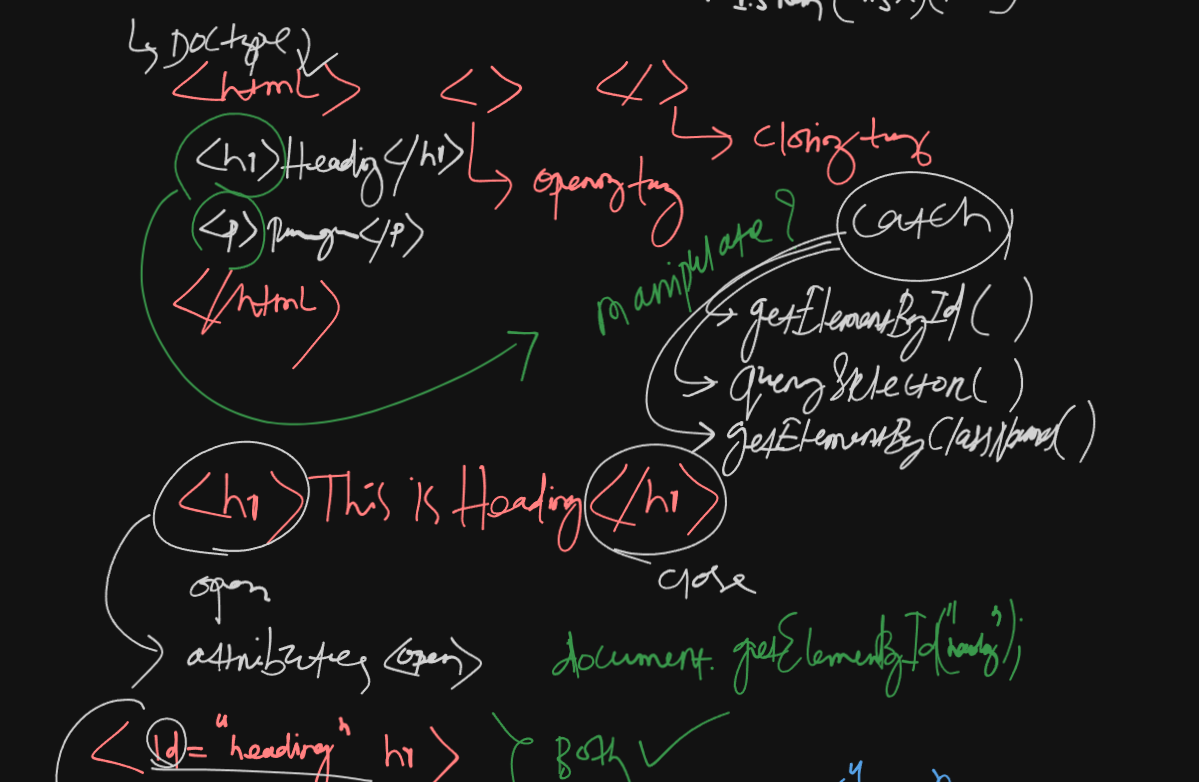 ↳ Doctype
<html> <> </>
<h1>Heading</h1>
↳ opening tag
↳ closing tag
<p></p>
</html>
manipulate?
catch
→ getElementById( )
→ querySelector( )
→ getElementsByClassName( )
<h1> This is Heading </h1>
open
close
attributes <open>
document.getElementById("heading");
< Id = "heading" h1 >
Both ✓